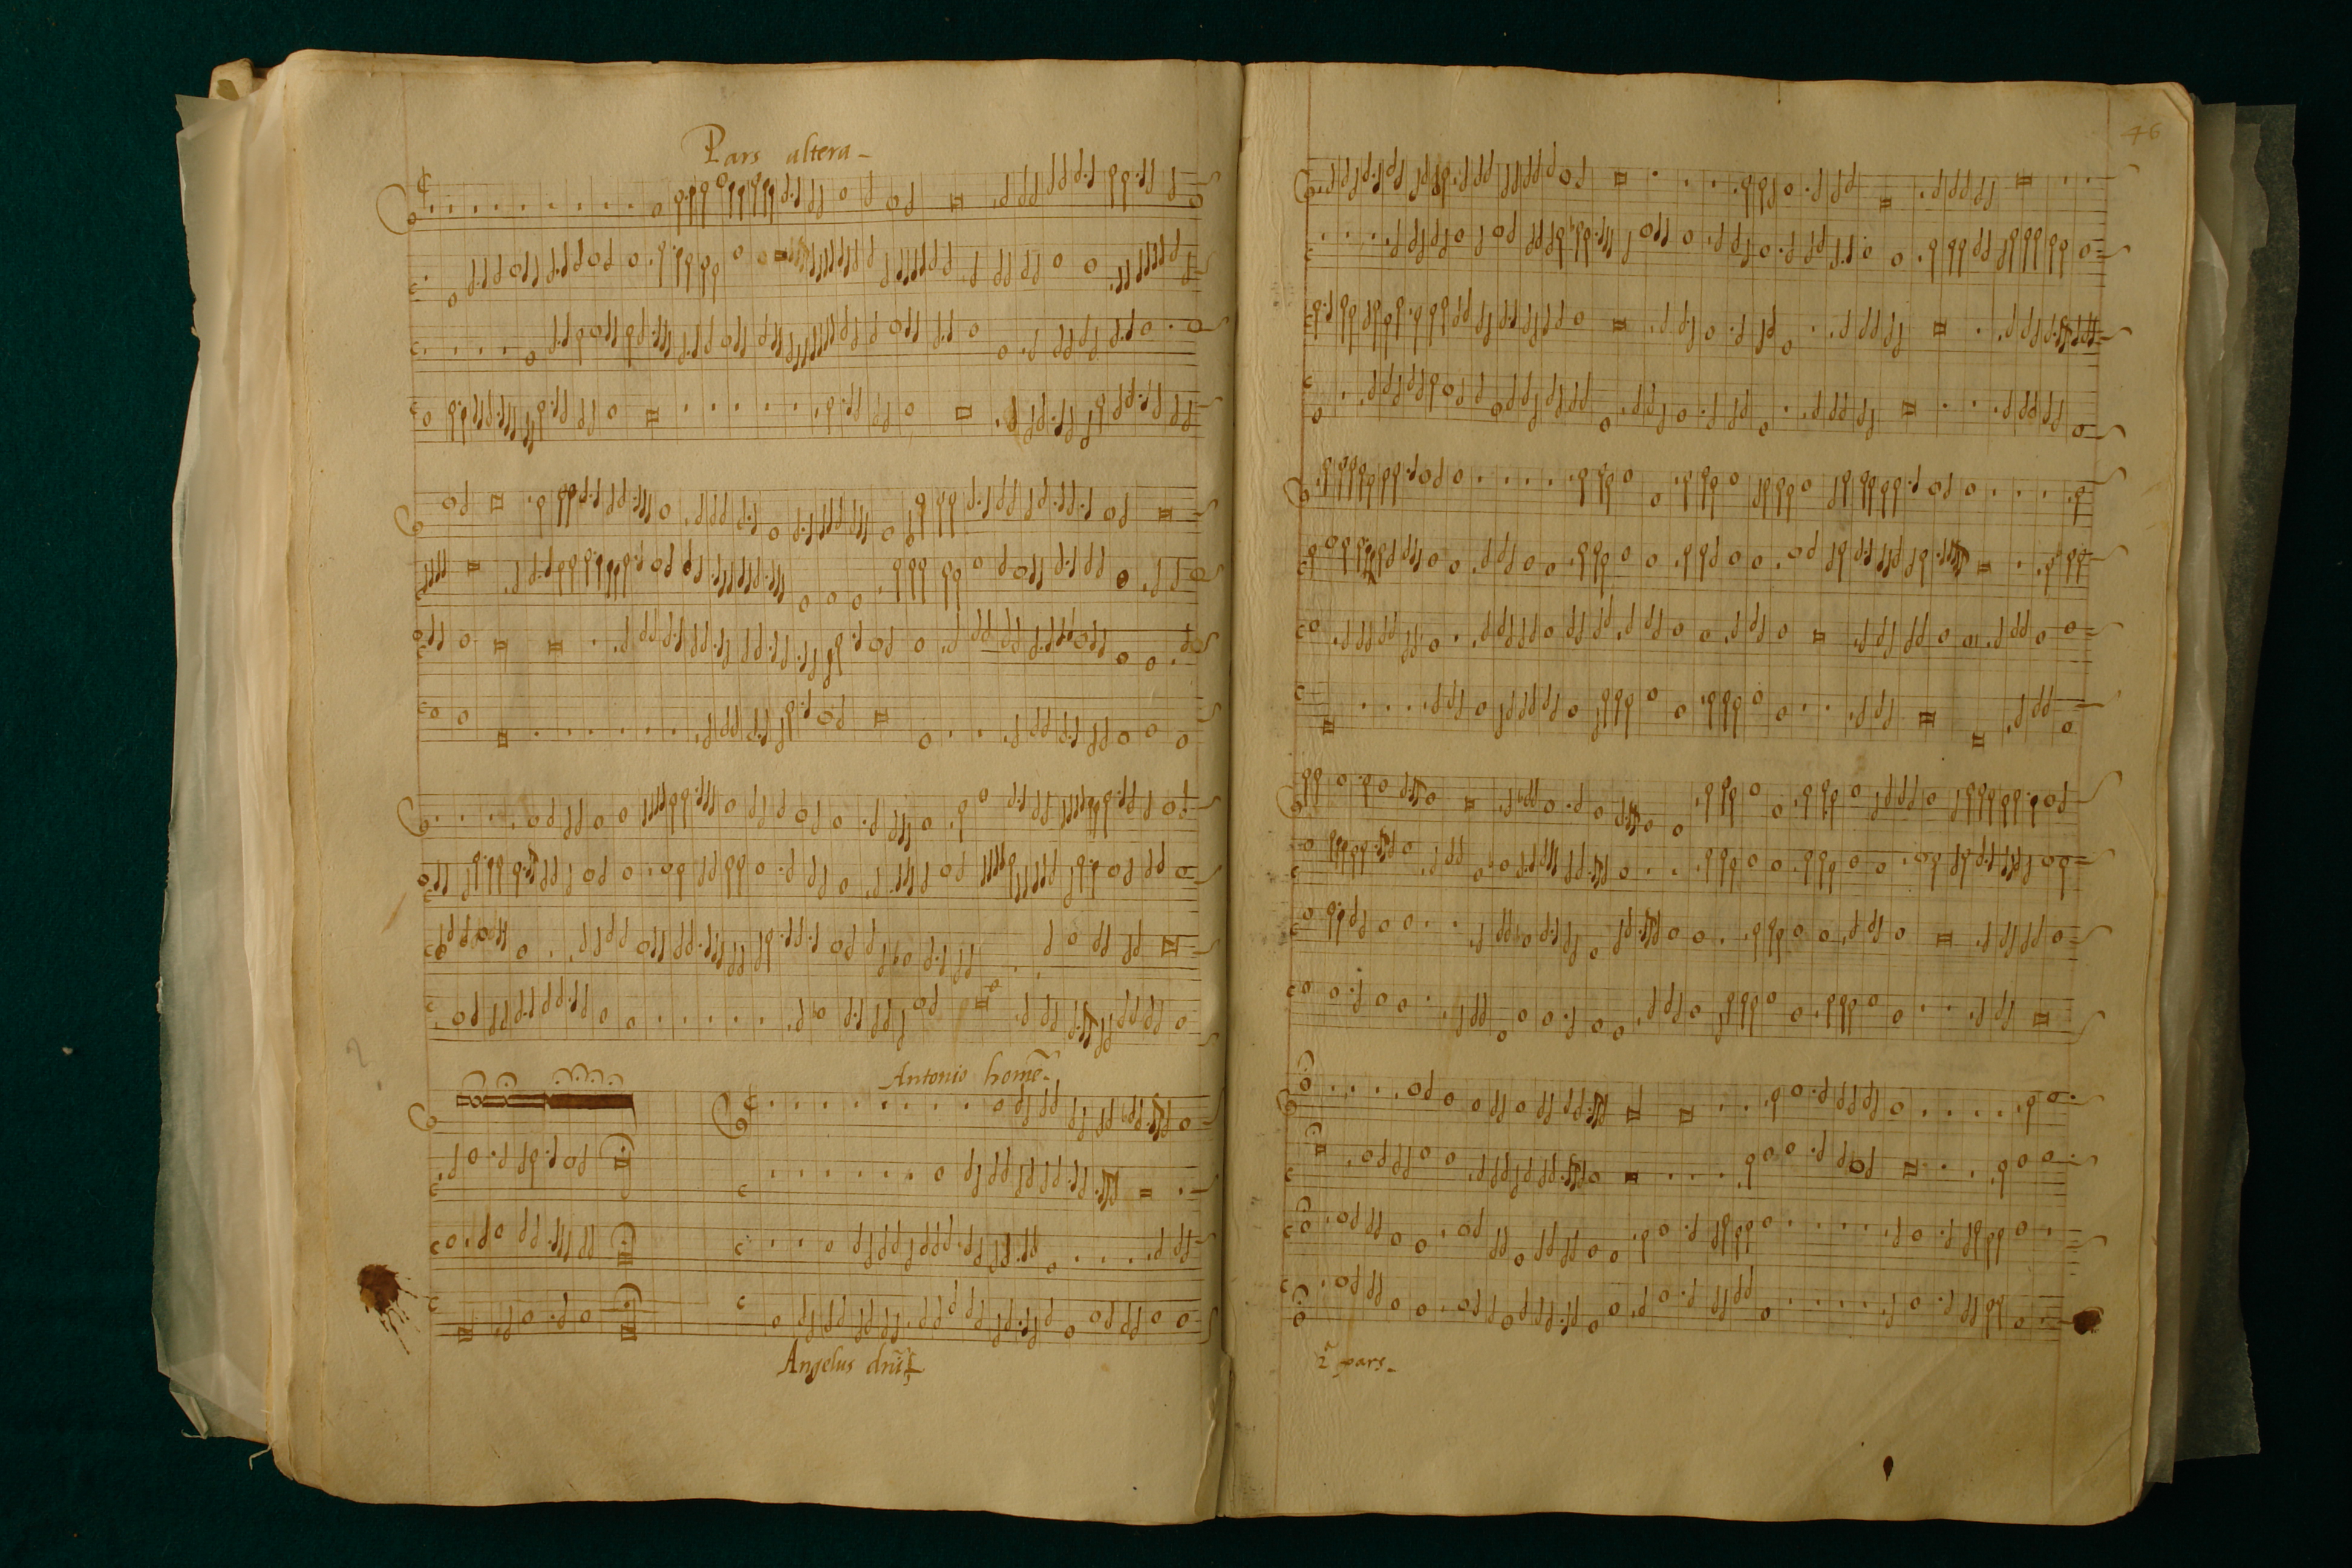 Pars altera
46
Antonio home~
Angelus dn~i
2ª pars